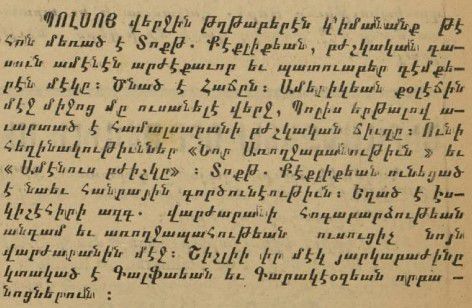 ՊՈԼՍՈՅ վերջին թղթաբերէն կ՚իմանանք թէ
Հոն մեռած է Տոքթ. Քէքլիքեան, բժշկական դա-
սուն ամէնէն արժէքաւոր եւ պատուաբեր դէմքե-
րէն մէկը։ Ծնած է Հաճըն։ Ամերիկեան քօլէճին
մէջ միջոց մը ուսանելէ վերջ, Պոլիս երթալով ա-
ւարտած է Համալսարանի բժշկական ճիւղը։ Ունի
Հեղինակութիւններ «Նոր Առողջարանութիւն » եւ
« Ամէնուս բժիչկը» ։ Տոքթ. Քէքլիքեան ունեցած
է նաեւ Հանրային գործունէութիւն։ Եղած է Էս-
կիչէՀիրի ազգ. վարժարանի Հոգաբարձութեան
անդամ եւ առողջապաՀութեան ուսուցիչ նոյն
վարժարանին մէջ։ Շիշլիի իր մէկ յարկաբաժինը
կտակած է Գալֆաեան եւ Գարակէօզեան որբա -
նոցներուն ։